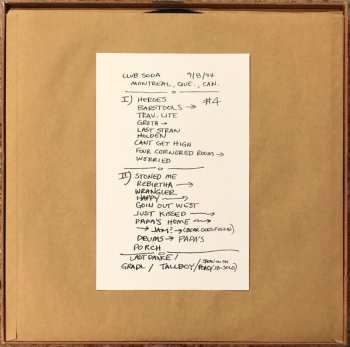 CLUB SODA 9/8/97
MONTREAL, QUE., CAN.
I) HEROES #4
BARSTOOLS →
TRAV. LITE
GRETA →
LAST STRAW
HOLDEN
CANT GET HIGH
FOUR CORNERED ROOM →
WORRIED
II) STONED ME
REBIRTHA →
WRANGLER
HAPPY →
GOIN OUT WEST
JUST KISSED →
PAPA'S HOME →
→ JAM? →
DRUMS → PAPA'S
PORCH
LAST DANCE /
GRADL / TALLBOY /